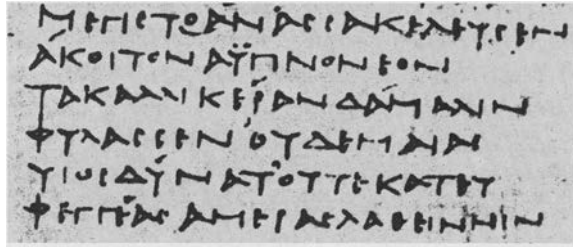 ΜΕΓΙCΤΟΑΝΑCCΑΚΕΛΕΥCΕΝ
ΑΚΟΙΤΟΝΑΫΠΝΟΝΕΟΝ
ΤΑΚΑΛΛΙΚΕΡΑΝΔΑΜΑΛΙΝ
ΦΥΛΑCCΕΝΟΥΔΕΜΑΙΑC
ΥΙΟCΔΥΝΑΤΟΥΤΕΚΑΤΕΥ
ΦΕΓΓΕΑCΑΜΕΡΑCΛΑΘΕΙΝΝΙΝ